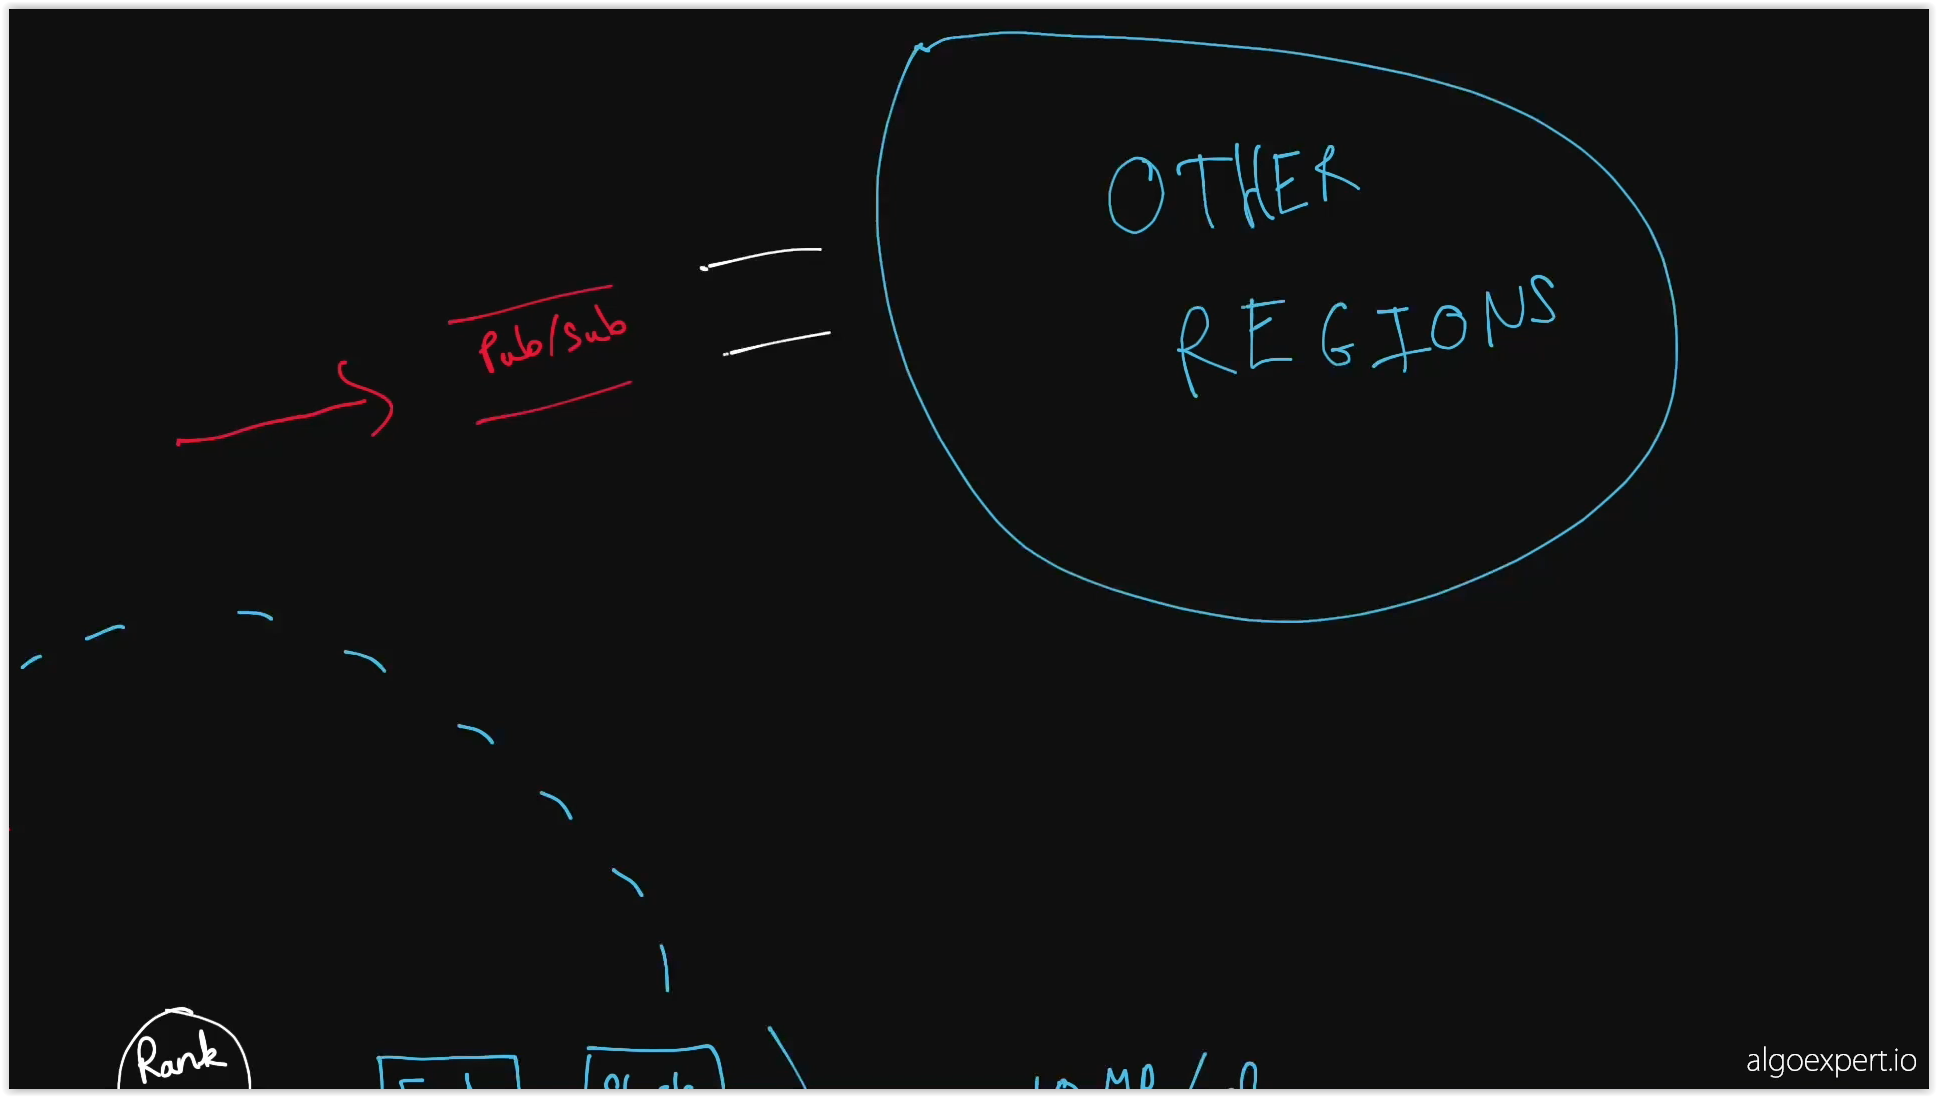 OTHER
REGIONS
Pub/Sub
Rank
algoexpert.io